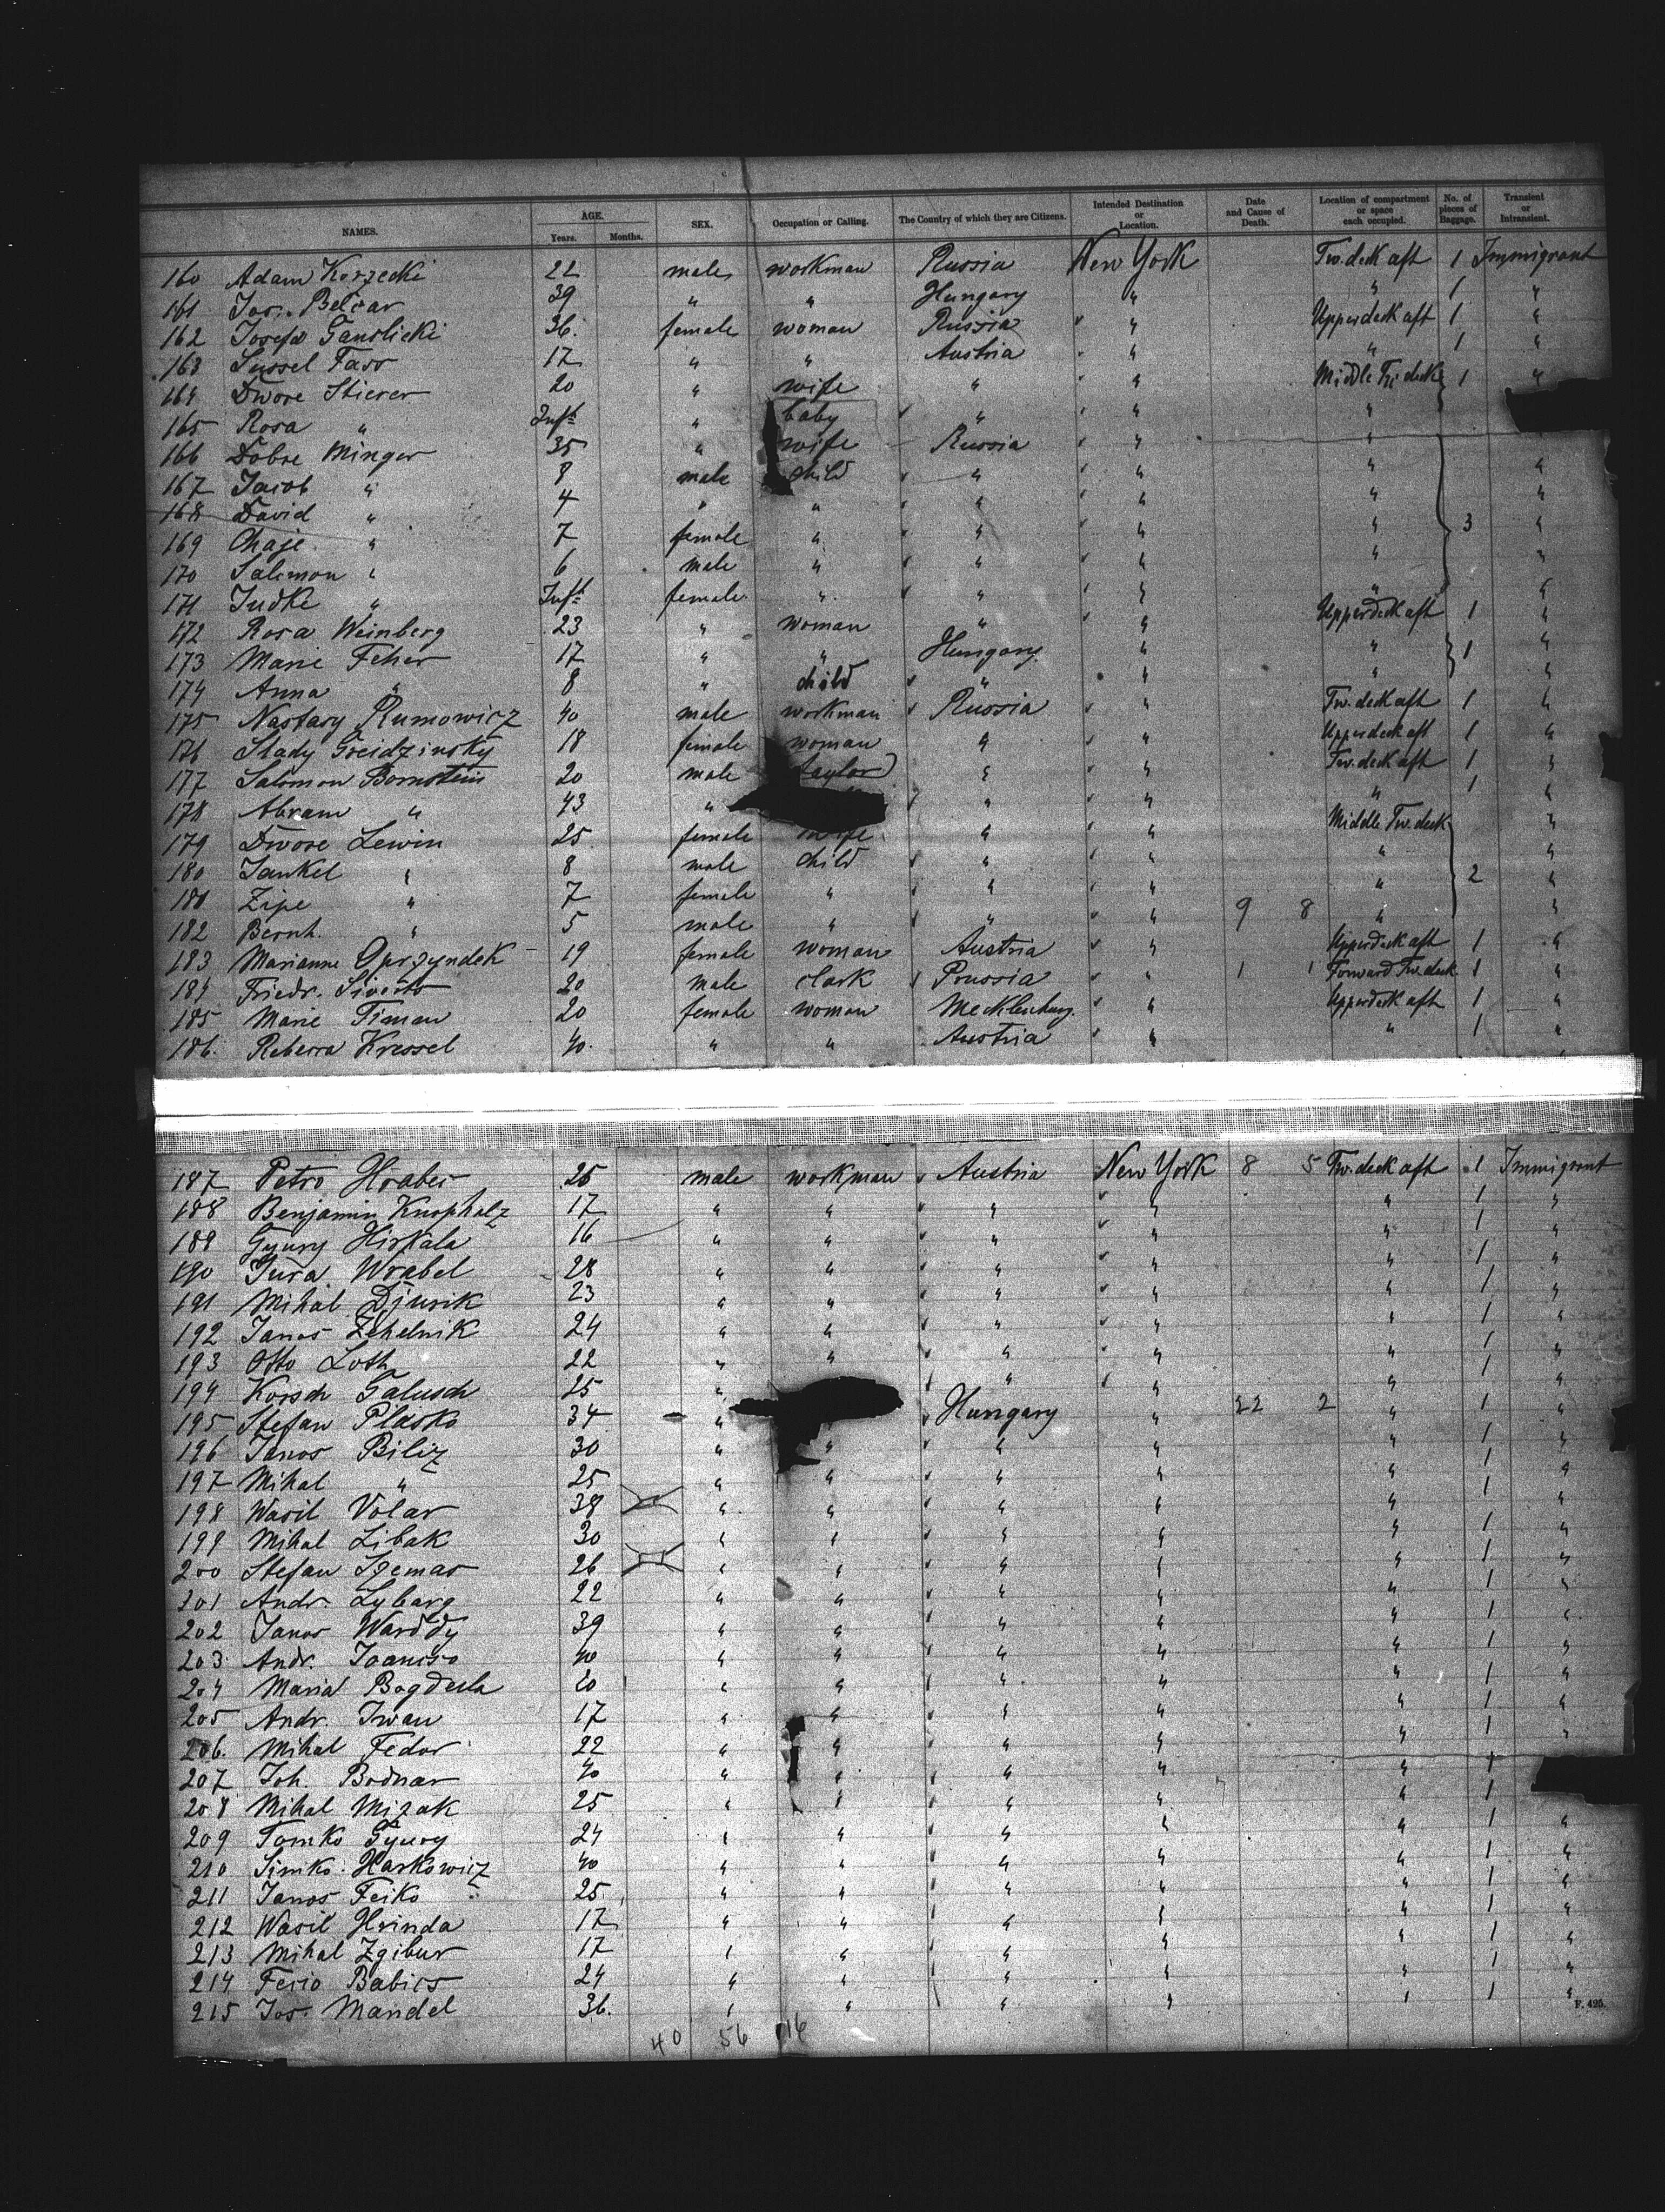 NAMES. AGE. Years. Months. SEX. Occupation or Calling. The Country of which they are Citizens. Intended Destination or Location. Date and Cause of Death. Location of compartment or space each occupied. No. of pieces of Baggage. Transient or Intransient.
160 Adam Korzecki 22 male workman Russia New York Tw. deck aft 1 Immigrant
161 Jos. Betzar 39 " " Hungary " " 1 "
162 Josefa Ganslicki 36. female woman Russia " Upperdeck aft 1 "
163 Sussel Fass 17 " " Austria " " 1 "
164 Dwore Stierer 20 " wife " " Middle Tw deck 1 "
165 Rosa " Inft baby " " "
166 Dobre Minger 35 " wife Russia " "
167 Jacob " 8 male child " " " "
168 David " 4 " " " " " "
169 Chaje " 7 female " " " " 3 "
170 Salomon " 6 male " " " " "
171 Judke " Inft female " " " " "
172 Rosa Weinberg 23 " woman " " Upperdeck aft 1 "
173 Marie Feher 17 " " Hungary " " 1 "
174 Anna " 8 " child " " " "
175 Nastasy Rumowicz 40 male workman Russia " Tw. deck aft 1 "
176 Stady Greidzinsky 18 female woman " " Upperdeck aft 1 "
177 Salomon Bornstein 20 male taylor " " Tw. deck aft 1 "
178 Abram " 43 " " " " 1 "
179 Dwore Lewin 25 female wife " " Middle Tw. deck "
180 Jankel " 8 male child " " " "
181 Zipe " 7 female " " " " 2 "
182 Bernh. " 5 male " " " 9 8 " "
183 Marianne Oprzyndek 19 female woman Austria " Upperdeck aft 1 "
184 Friedr. Siverts 20 male clark Prussia " 1 1 Forward Tw. deck 1 "
185 Marie Timan 20 female woman Mecklenburg. " Upperdeck aft 1 "
186. Rebecca Kressel 40. " " Austria " " 1 "
187 Petro Hrabec 25 male workman Austria New York 8 5 Tw. deck aft 1 Immigrant
188 Benjamin Knopholz 17 " " " " " 1 "
189 Gyury Hirkala 16 " " " " " 1 "
190 Jura Wrabel 28 " " " " " 1 "
191 Mihal Djurik 23 " " " " " 1 "
192 Janos Zehelnik 24 " " " " " 1 "
193 Otto Loth 22 " " " " " 1 "
194 Korsch Galusch 25 " " " " 1 "
195 Stefan Plasko 34 " " Hungary " 22 2 " 1 "
196 Janos Biliz 30 " " " " " 1 "
197 Mihal " 25 " " " " " 1 "
198 Wasil Volar 38 " " " " " 1 "
199 Mihal Libak 30 " " " " " 1 "
200 Stefan Szemas 26 " " " " " 1 "
201 Andr. Lybarg 22 " " " " " 1 "
202 Janos Warddy 39 " " " " " 1 "
203 Andr. Ioaniso 40 " " " " " 1 "
204 Maria Bogdula 20 " " " " " 1 "
205 Andr. Iwan 17 " " " " " 1 "
206. Mihal Fedor 22 " " " " " 1 "
207 Joh. Bodnar 40 " " " " " 1
208 Mihal Mizak 25 " " " " " 1
209 Tomko Gyury 24 " " " " " 1 "
210 Simko Harkowicz 40 " " " " " 1 "
211 Janos Feiko 25 " " " " " 1 "
212 Wasil Hrinda 17 " " " " " 1 "
213 Mihal Zgibur 17 " " " " " 1 "
214 Fecio Babics 24 " " " " " 1 "
215 Jos. Mandel 36. " " " " " 1 "
F. 425.
40 56 16